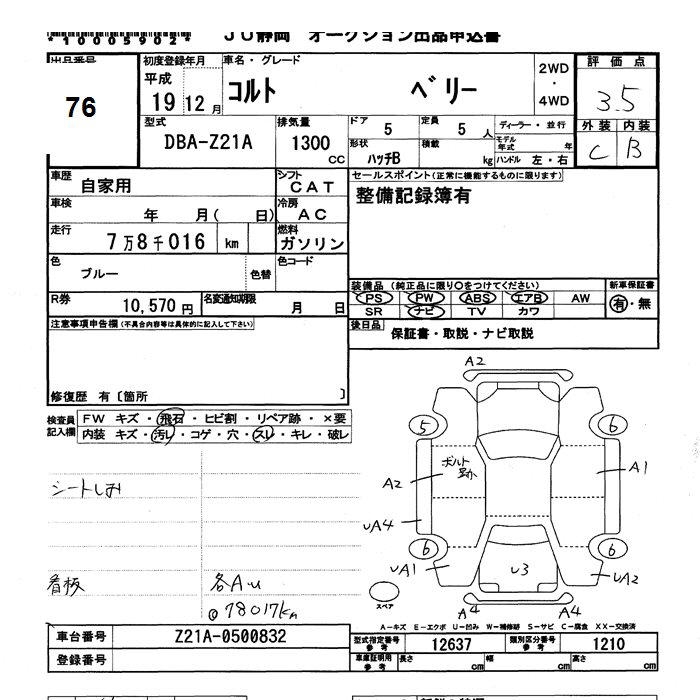 *10005902*
JU静岡 オークション出品申込書
出品番号
76
初度登録年月
平成
19 12 月
車名・グレード
コルト ベリー
2WD
・
4WD
評価点
3.5
外装 内装
C B
型式
DBA-Z21A
排気量
1300
CC
ドア 5
定員 5 人
形状 ハッチB
積載 kg
ディーラー・並行
モデル年式 年
ハンドル 左・右
車歴
自家用
シフト
CAT
車検
年 月( 日)
冷房
AC
走行
7万8千016 km
燃料
ガソリン
色
ブルー
色替
色コード
R券
10,570 円
名変通知期限
月 日
セールスポイント(正常に機能するものに限ります)
整備記録簿有
装備品 (純正品に限り○をつけてください)
PS PW ABS エアB AW
SR ナビ TV カワ
新車保証書
有・無
後日品
保証書・取説・ナビ取説
注意事項申告欄(不具合内容等は具体的に記入して下さい)
修復歴 有〔箇所 〕
検査員
記入欄
FW キズ・飛石・ヒビ割・リペア跡・×要
内装 キズ・汚レ・コゲ・穴・スレ・キレ・破レ
シートしみ
看板
各AU
@78017km
A2
5
6
ボルト
跡
A2
A1
UA4
6
6
UA1
U3
UA2
スペア
A4
A4
A-キズ E-エクボ U-凹み W-補修跡 S-サビ C-腐食 XX-交換済
車台番号
Z21A-0500832
登録番号
型式指定番号
参考
12637
類別区分番号
参考
1210
車庫証明用
参考
長さ cm
幅 cm
高さ cm